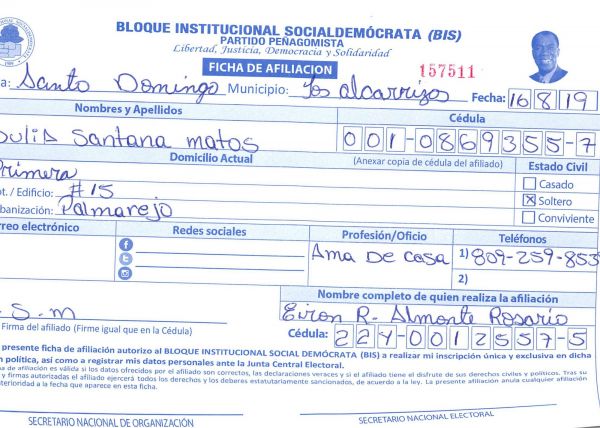 BLOQUE INSTITUCIONAL SOCIALDEMÓCRATA (BIS)
PARTIDO PEÑAGOMISTA
Libertad, Justicia, Democracia y Solidaridad
FICHA DE AFILIACION
157511
a: Santo Domingo Municipio: Los alcarrizos Fecha: 16 8 19
Nombres y Apellidos Cédula
Julia Santana matos 001-0869355-7
Domicilio Actual (Anexar copia de cédula del afiliado) Estado Civil
Primera Casado
pt. / Edificio: #15 Soltero
banización: Palmarejo Conviviente
rreo electrónico Redes sociales Profesión/Oficio Teléfonos
Ama De Casa 1) 809-259-853
2)
Nombre completo de quien realiza la afiliación
. S. m Eiron R. Almonte Rosario
Firma del afiliado (Firme igual que en la Cédula) Cédula: 224-0012557-5
presente ficha de afiliación autorizo al BLOQUE INSTITUCIONAL SOCIAL DEMÓCRATA (BIS) a realizar mi inscripción única y exclusiva en dicha
n política, así como a registrar mis datos personales ante la Junta Central Electoral.
a de afiliación es válida si los datos ofrecidos por el afiliado son correctos, las declaraciones veraces y si el afiliado tiene el disfrute de sus derechos civiles y políticos. Tras su
y firmas autorizadas el afiliado ejercerá todos los derechos y los deberes estatutariamente sancionados, de acuerdo a la ley. La presente afiliación anula cualquier afiliación
terioridad a la fecha que aparece en esta ficha.
SECRETARIO NACIONAL DE ORGANIZACIÓN SECRETARIO NACIONAL ELECTORAL